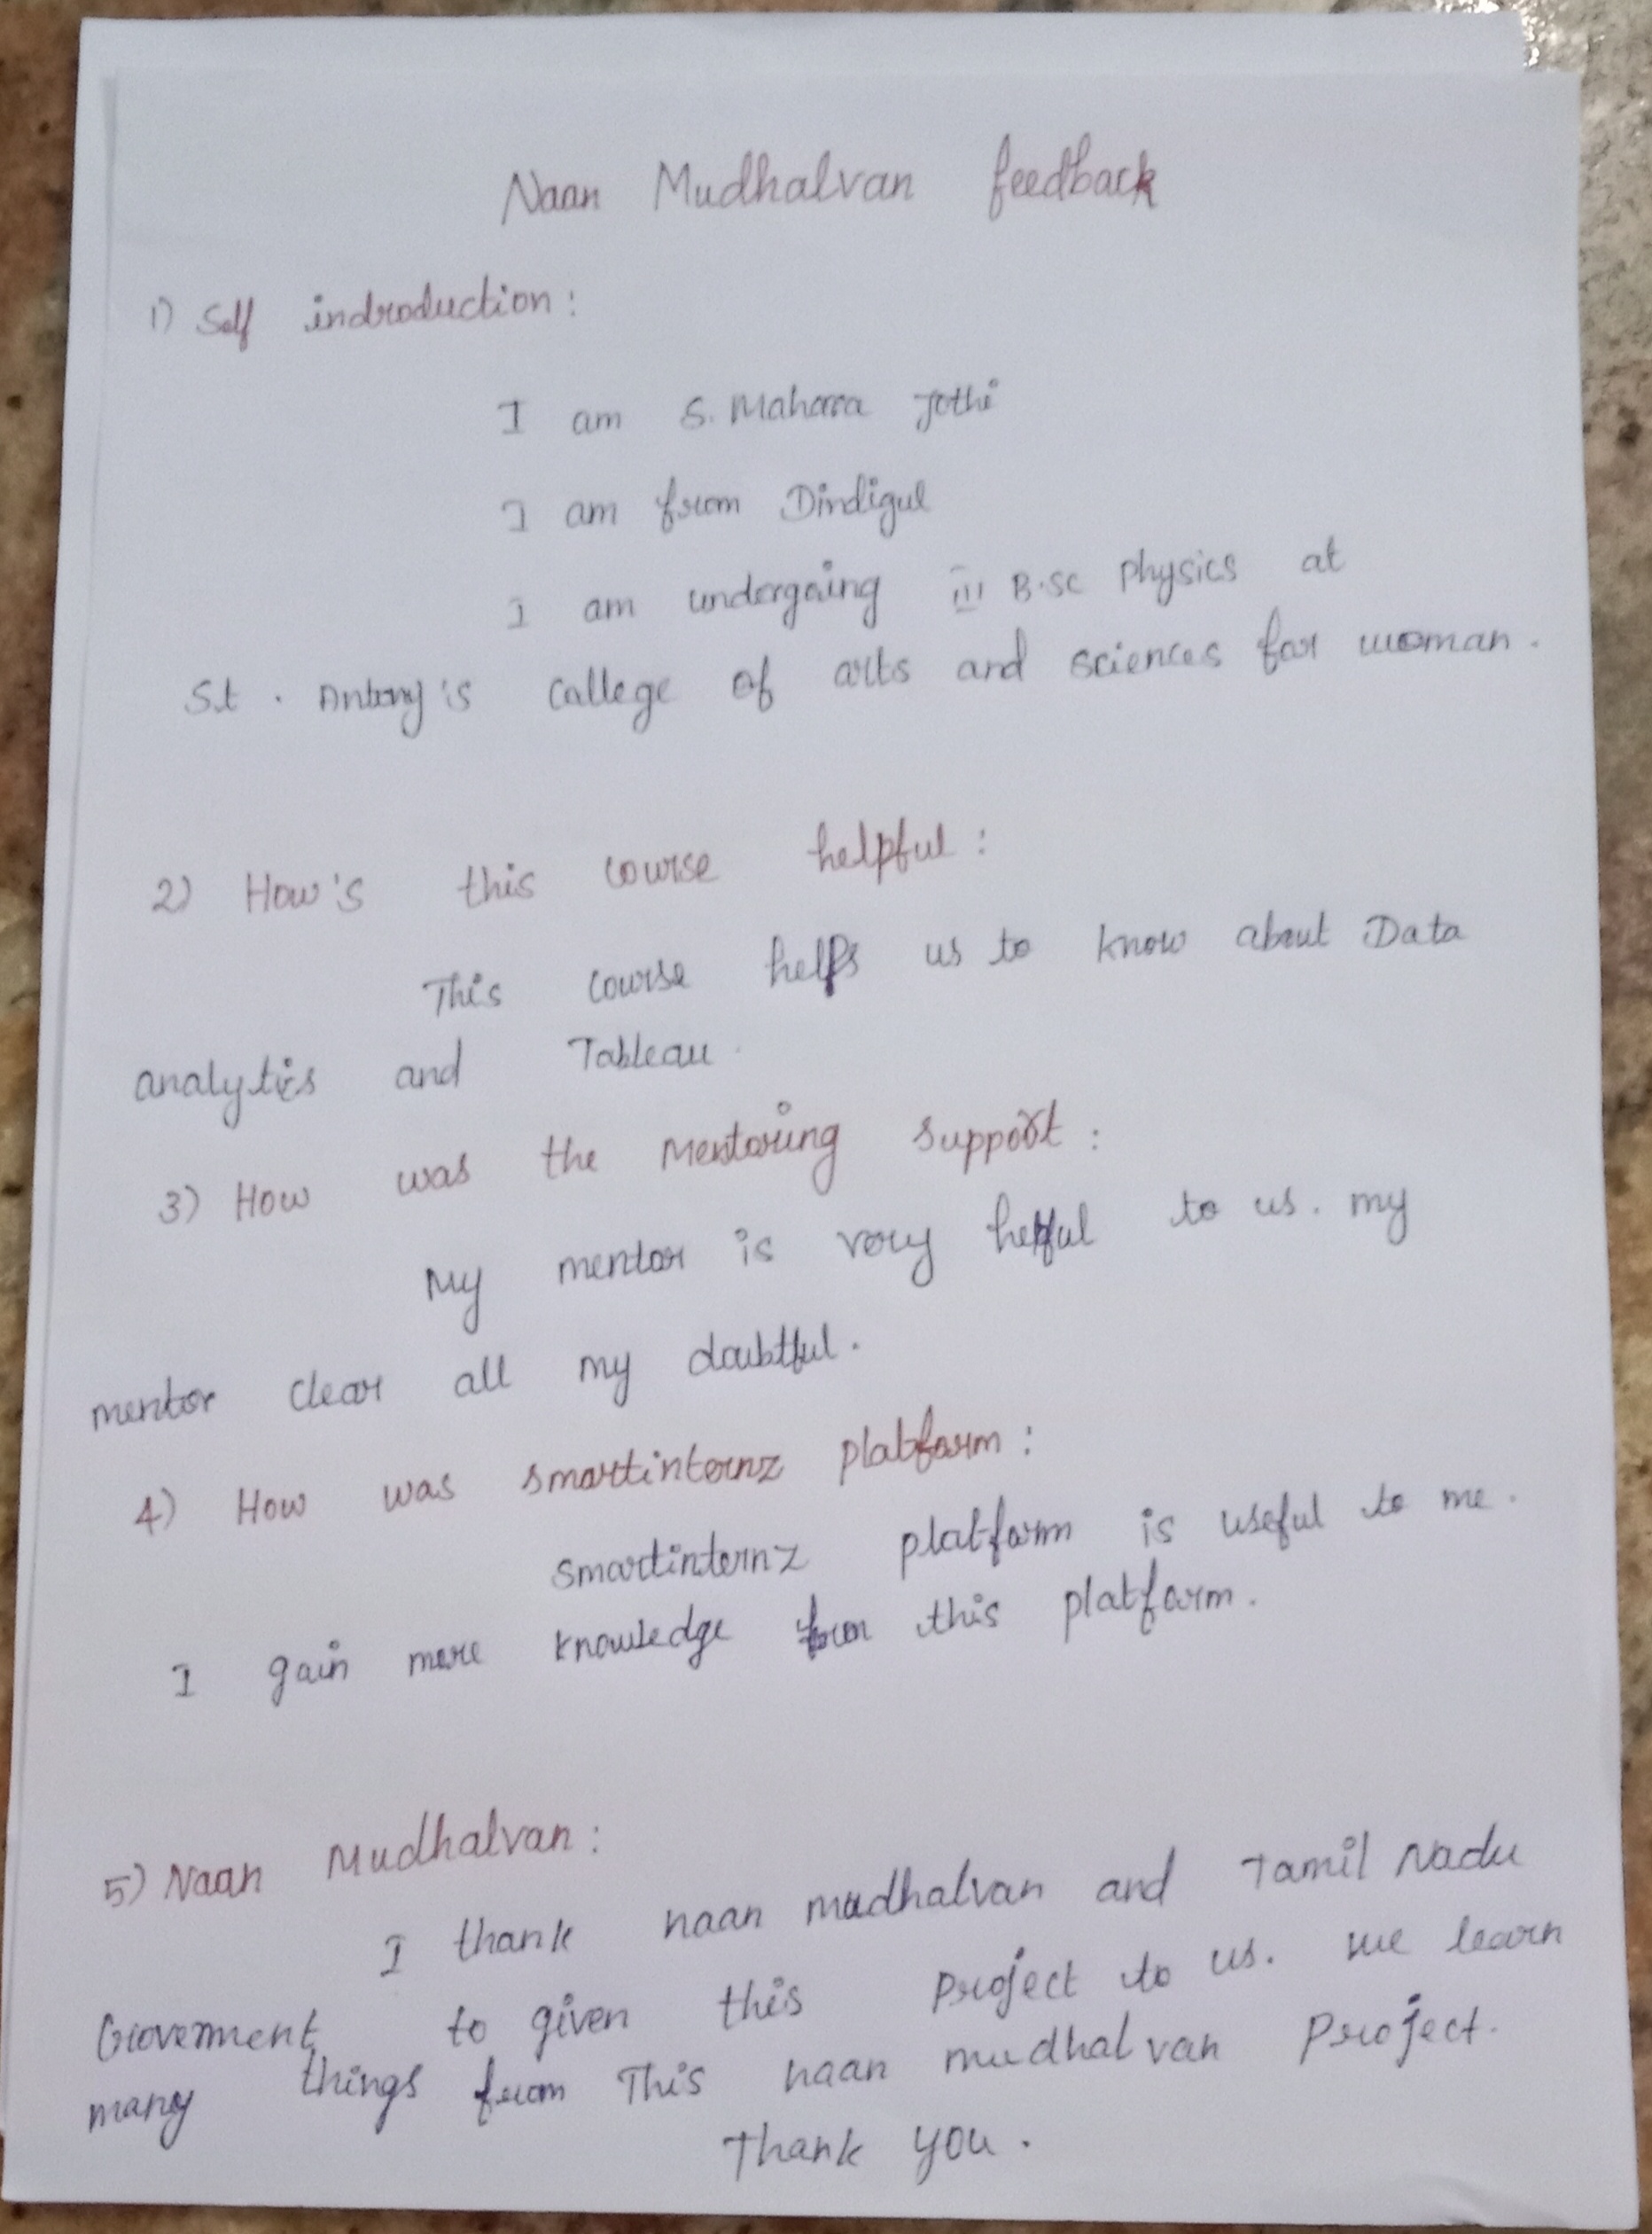 Naan Mudhalvan feedback
1) Self indroduction :
I am S. Mahara Jothi
I am from Dindigul
I am undergoing III B.sc physics at
St . Antony's college of arts and sciences for woman.
2) How's this course helpful :
This course helps us to know about Data
analytics and Tableau.
3) How was the Mentoring support :
My mentor is very helpful to us. my
mentor clear all my doubtful.
4) How was smartinternz platform :
smartinternz platform is useful to me.
I gain more knowledge from this platform.
5) Naan Mudhalvan :
I thank naan mudhalvan and Tamil Nadu
Goverment to given this project to us. we learn
many things from This naan mudhalvan project.
Thank you.